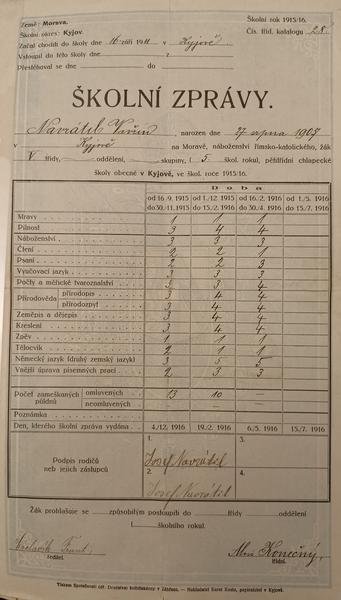 Země: Morava. Školní rok 1915/16
Školní okres: Kyjov. Čís. tříd. katalogu 28
Začal choditi do školy dne 16. září 1911 v Kyjově
Vstoupil do této školy dne z
Přestěhoval se dne do
ŠKOLNÍ ZPRÁVY.
Navrátil , narozen dne 27 srpna 1905
v Kyjově na Moravě, náboženství římsko-katolického, žák
V třídy, oddělení, skupiny, (5 škol. roku), pětitřídní chlapecké
školy obecné v Kyjově, ve škol. roce 1915/16.
Doba
od 16./9. 1915 do 30./11. 1915 od 1./12. 1915 do 15./2. 1916 od 16./2. 1916 do 30./4. 1916 od 1./5. 1916 do 15./7. 1916
Mravy 1 1 1
Pilnost 3 4 4
Náboženství 3 3 3
Čtení 2 2 1
Psaní 2 2 3
Vyučovací jazyk 3 3 3
Počty a měřické tvaroznalství 3 4 4
Přírodověda přírodopis 3 4 4
přírodozpyt 3 4 4
Zeměpis a dějepis 3 4 4
Kreslení 3 4 4
Zpěv 1 1 1
Tělocvik 2 1 1
Německý jazyk (druhý zemský jazyk) 3 5 5
Vnější úprava písemných prací 2 3 3
Počet zameškaných půldnů omluvených 13 10 —
neomluvených — — —
Poznámka
Den, kterého školní zpráva vydána 4./12. 1916 19./2. 1916 6./5. 1916 15./7. 1916
Podpis rodičů neb jejich zástupců
1. Josef Navrátil 3.
2. Josef Navrátil 4.
Žák prohlašuje se způsobilým postoupiti do třídy oddělení
( školního roku).
ředitel. Konečný,
třídní.
Tiskem Společenské